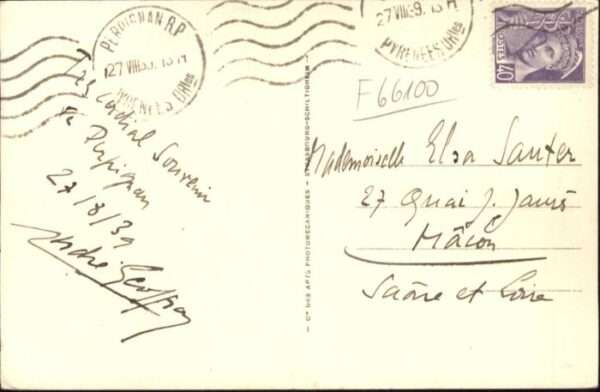 PERPIGNAN R.P.
27 VIII 39. 13 H
PYRENEES ORles
27 VIII 39. 13 H
PYRENEES ORles
POSTES
40
F66100
Très cordial Souvenir
de Perpignan
27/8/39
André
Cie DES ARTS PHOTOMECANIQUES - STRASBOURG-SCHILTIGHEIM
Mademoiselle Elsa Sauter
27 Quai J. Jaurès
Mâcon
Saône et Loire